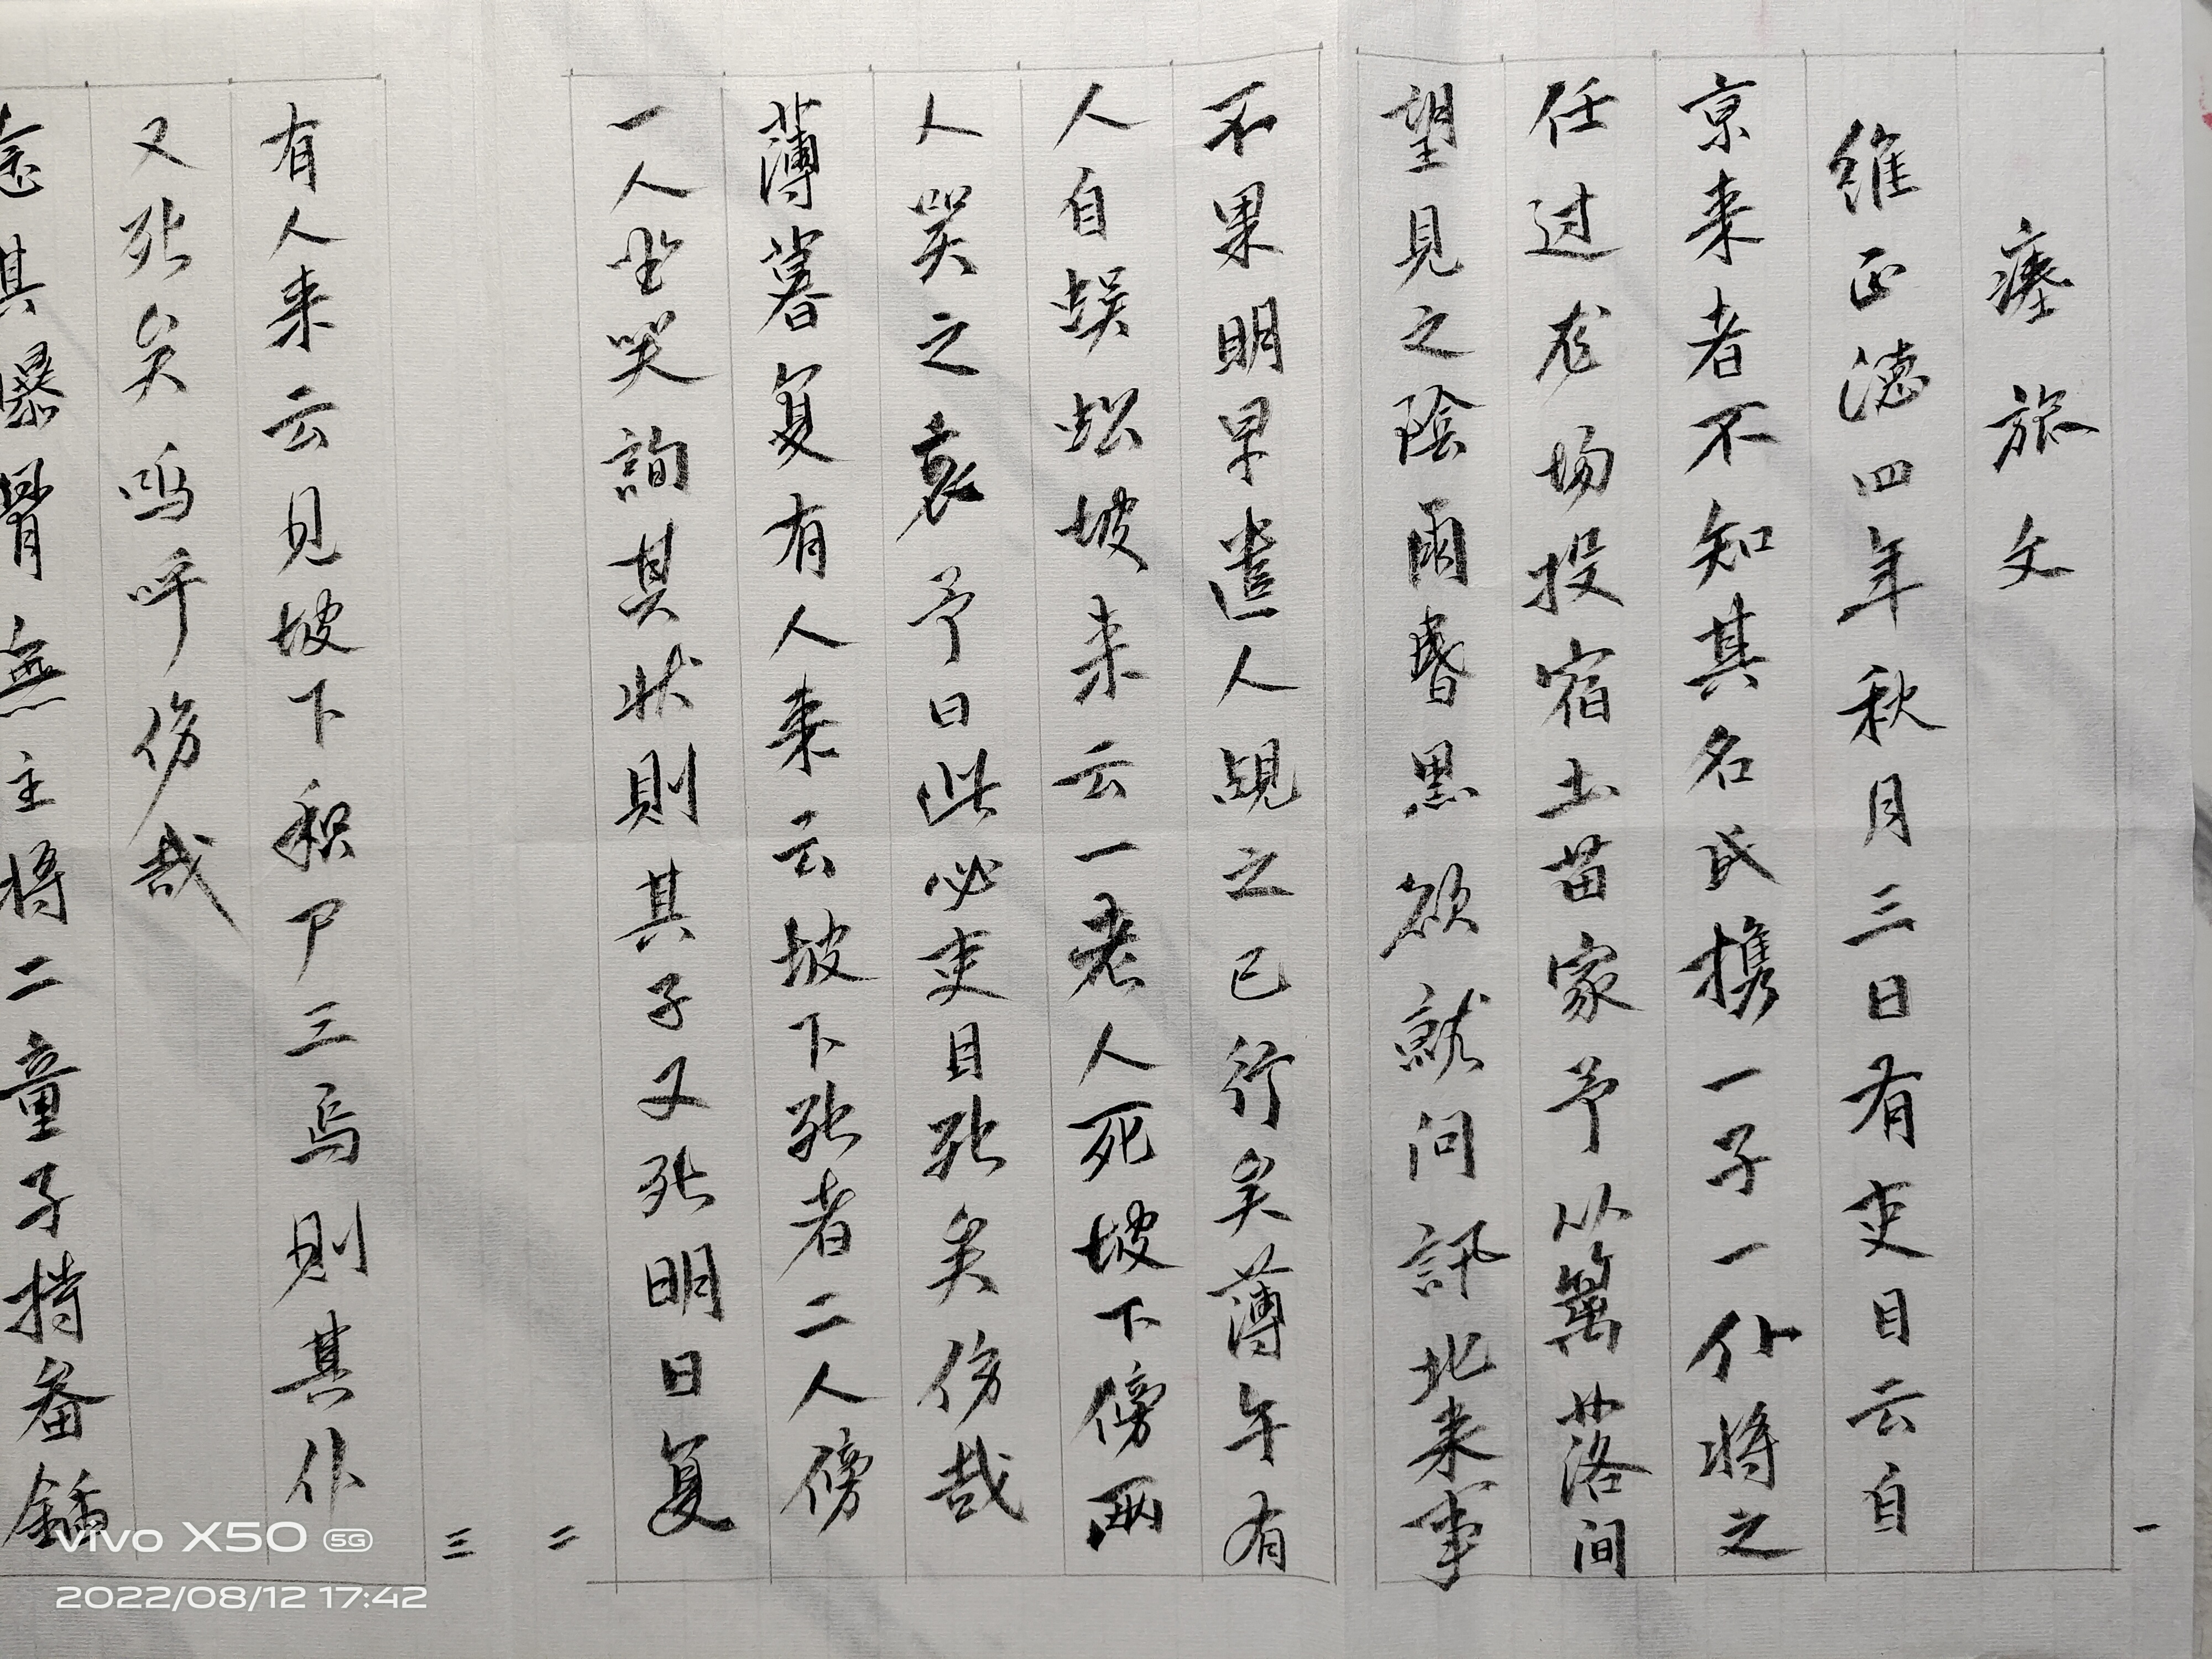 瘞旅文
維正德四年秋月三日有吏目云自
京来者不知其名氏携一子一仆将之
任过龙场投宿土苗家予从篱落间
望見之陰雨昏黑欲就问訊北来事
不果明早遣人覘之已行矣薄午有
人自蜈蚣坡来云一老人死坡下傍两
人哭之哀予曰此必吏目死矣伤哉
薄暮复有人来云坡下死者二人傍
一人坐哭詢其状則其子又死明日复
有人来云見坡下积尸三焉則其仆
又死矣呜呼伤哉
念其暴骨無主将二童子持畚鍤
一
二
三
vivo X50 5G
2022/08/12 17:42